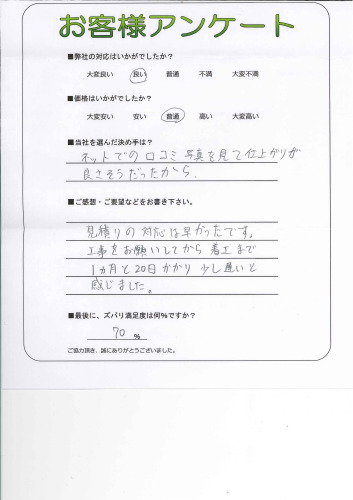 お客様アンケート
■弊社の対応はいかがでしたか？
大変良い 良い 普通 不満 大変不満
■価格はいかがでしたか？
大変安い 安い 普通 高い 大変高い
■当社を選んだ決め手は？
ネットでの口コミ 写真を見て仕上がりが
良さそうだったから.
■ご感想・ご要望などをお書き下さい。
見積りの対応は早かったです。
工事をお願いしてから着工まで
1カ月と20日かかり少し遅いと
感じました。
■最後に、ズバリ満足度は何%ですか？
70 %
ご協力頂き、誠にありがとうございました。